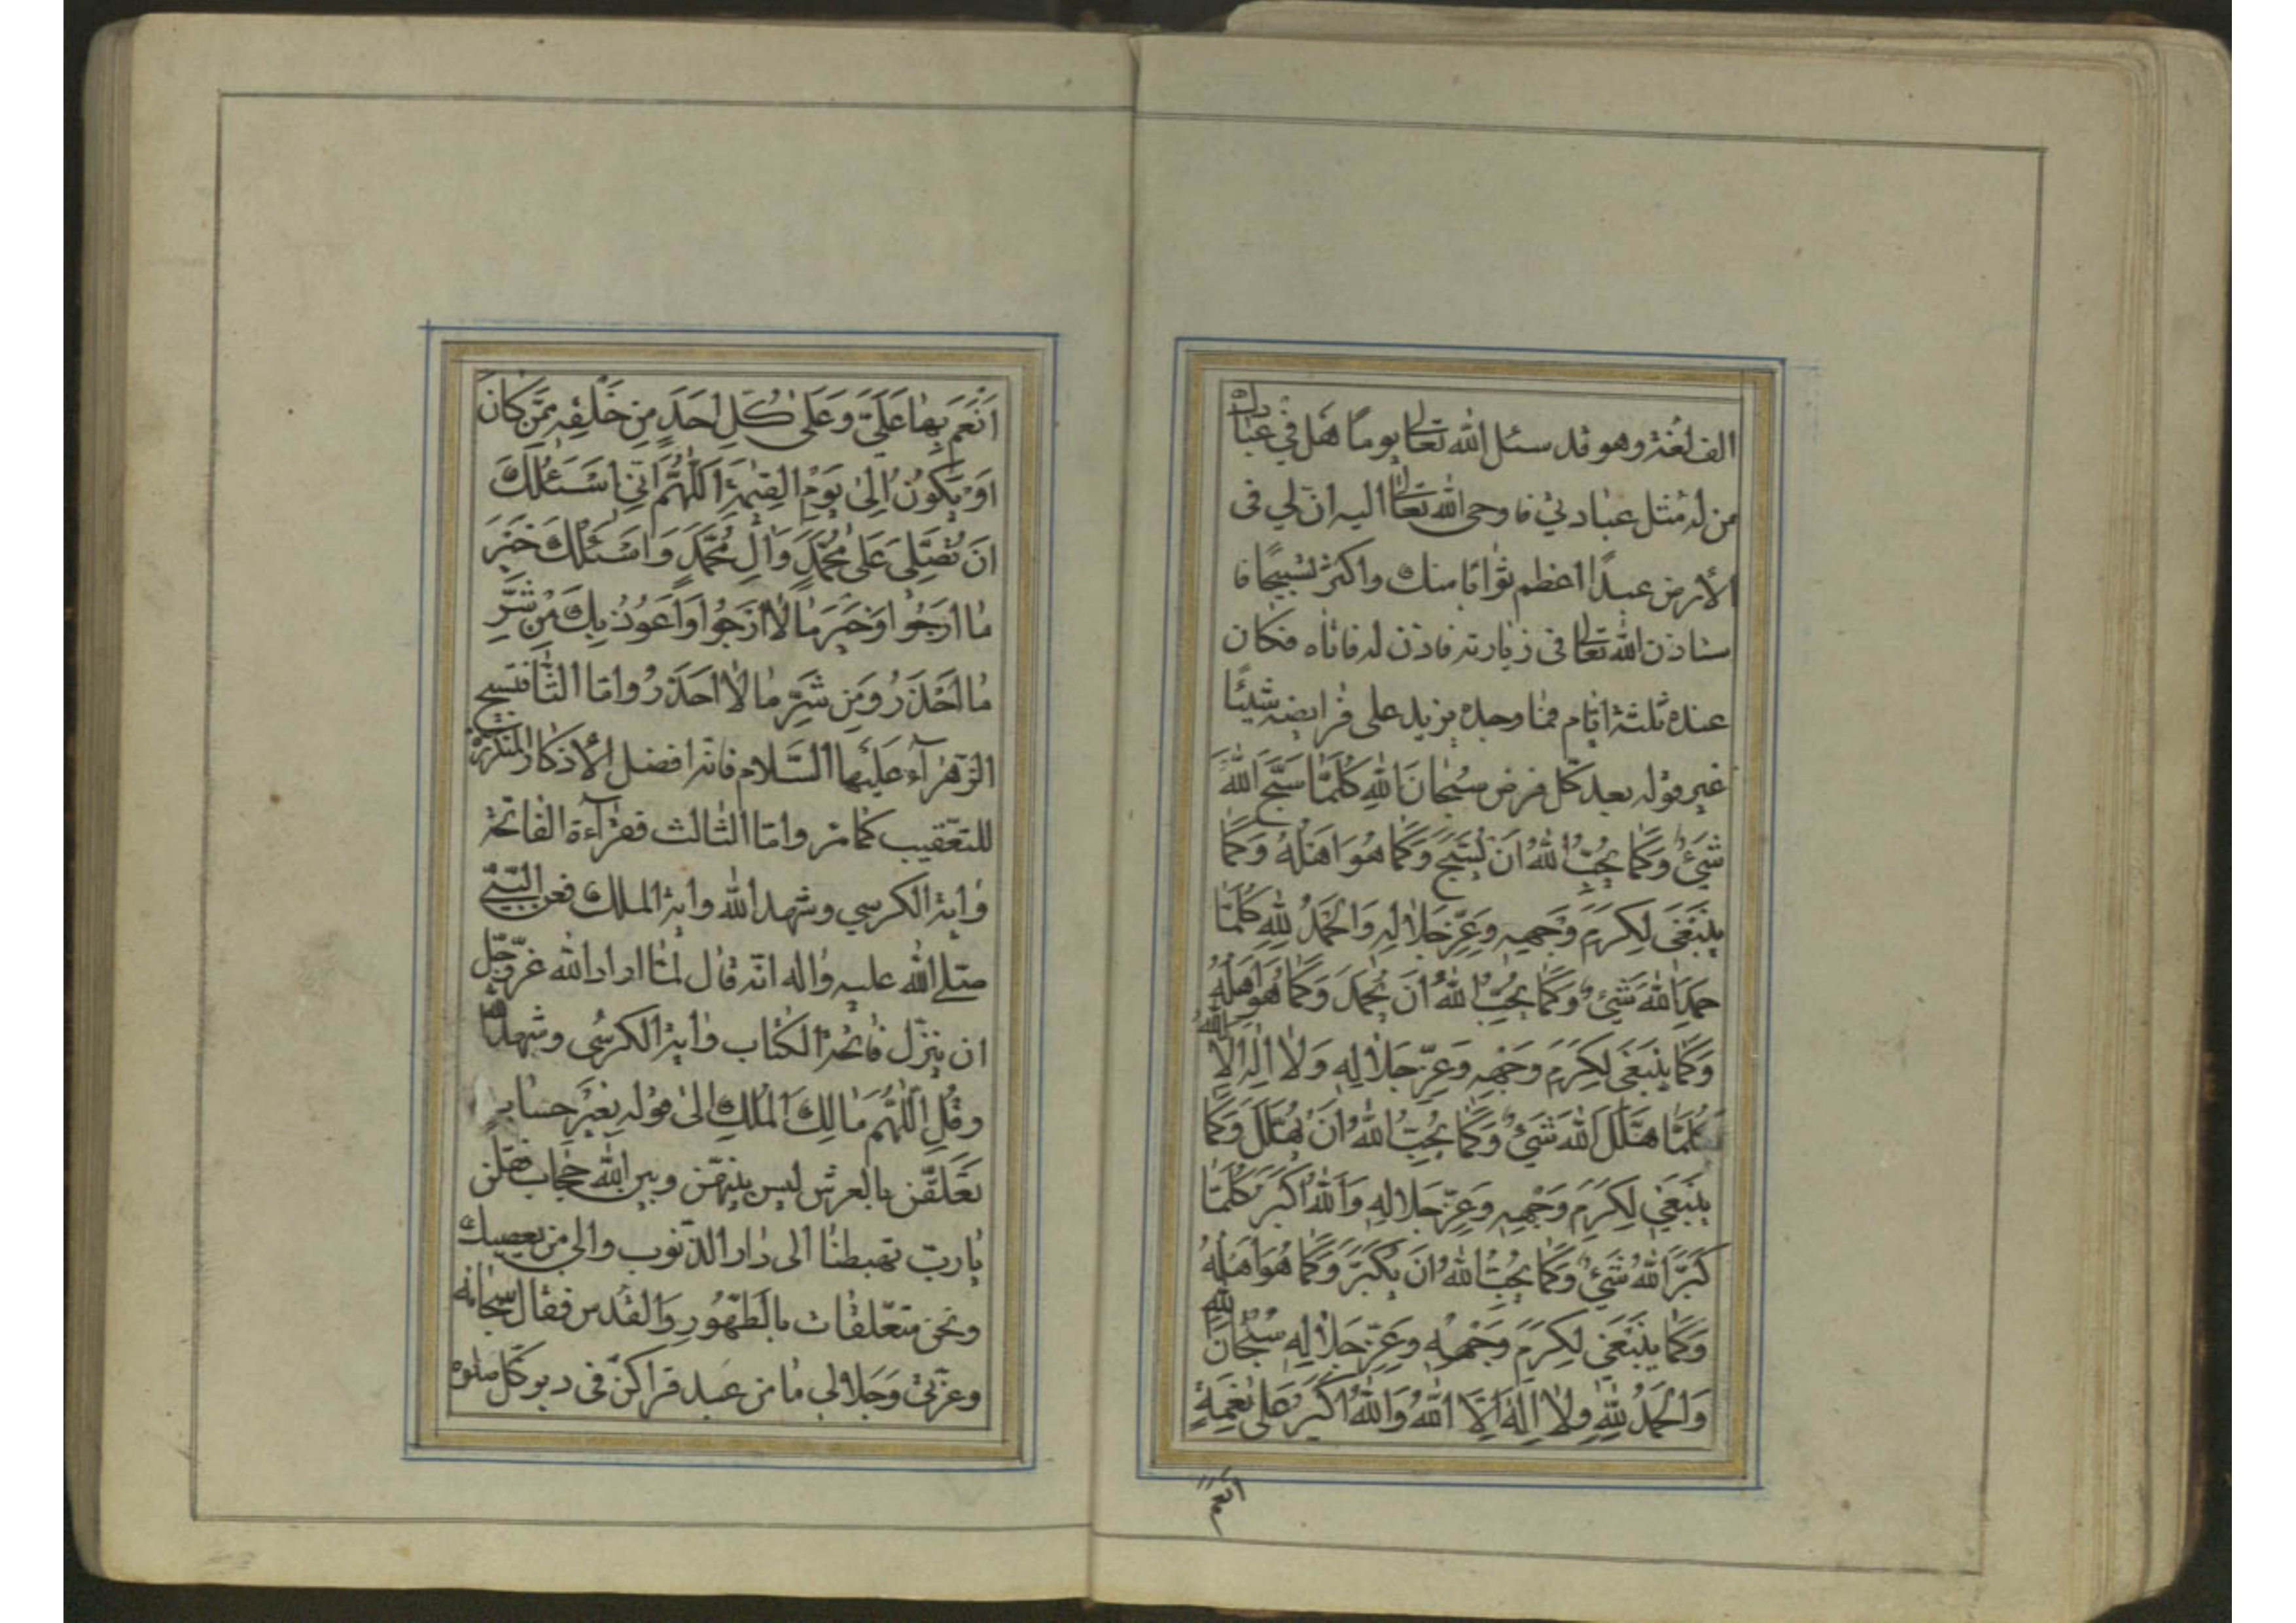 الف لغة وهو قد سئل الله تعالى يوما هل في عبادك
من له مثل عبادتي فاوحى الله تعالى اليه ان لي فى
الأرض عبدًا اعظم ثوابا منك واكثر تسبيحًا فا
ستاذن الله تعالى فى زيارته فاذن له فاتاه فكان
عنده ثلثة ايّام فما وجده يزيد على فرايضه شيئًا
غير قوله بعد كل فرض سُبْحانَ اللهِ كُلَّمٰا سَبَّحَ اللهَ
شَيْءٌ وَكَمٰا يُحِبُّ اللهُ اَنْ يُسَبَّحَ وَكَمٰا هُوَ اَهْلُهُ وَكَمٰا
يَنْبَغى لِكَرَمِ وَجْهِهِ وَعِزِّ جَلالِهِ وَالْحَمْدُ لِلّٰهِ كُلَّمٰا
حَمِدَ اللهَ شَيْءٌ وَكَمٰا يُحِبُّ اللهُ اَنْ يُحْمَدَ وَكَمٰا هُوَ اَهْلُهُ
وَكَمٰا يَنْبَغى لِكَرَمِ وَجْهِهِ وَعِزِّ جَلالِهِ وَلا اِلٰهَ اِلَّا اللهُ
كُلَّمٰا هَلَّلَ اللهَ شَيْءٌ وَكَمٰا يُحِبُّ اللهُ اَنْ يُهَلَّلَ وَكَمٰا
يَنْبَغي لِكَرَمِ وَجْهِهِ وَعِزِّ جَلالِهِ وَاللهُ اَكْبَرُ كُلَّمٰا
كَبَّرَ اللهَ شَيْءٌ وَكَمٰا يُحِبُّ اللهُ اَنْ يُكَبَّرَ وَكَمٰا هُوَ اَهْلُهُ
وَكَمٰا يَنْبَغي لِكَرَمِ وَجْهِهِ وَعِزِّ جَلالِهِ سُبْحانَ اللهِ
وَالْحَمْدُ لِلّٰهِ وَلا اِلٰهَ اِلَّا اللهُ وَاللهُ اَكْبَرُ عَلىٰ نِعْمَةٍ
انعم
اَنْعَمَ بِهٰا عَلَيَّ وَعَلىٰ كُلِّ اَحَدٍ مِنْ خَلْقِهِ مِمَّنْ كانَ
اَوْ يَكُونُ اِلىٰ يَوْمِ الْقِيٰمَةِ اَللّٰهُمَّ اِنّي اَسْئَلُكَ
اَنْ تُصَلِّيَ عَلىٰ مُحَمَّدٍ وَآلِ مُحَمَّدٍ وَاَسْئَلُكَ خَيْرَ
مٰا اَرْجُوا وَخَيْرَ مٰا لا اَرْجُوا وَاَعُوذُ بِكَ مِنْ شَرِّ
مٰا اَحْذَرُ وَمِنْ شَرِّ مٰا لا اَحْذَرُ وامّا الثّانى فتسبيح
الزّهرآء عليها السَّلام فانّه افضل الأذكار
للتعقيب كما مرّ وامّا الثالث فقرآءة الفاتحة
وٰاية الكرسي وشهد الله وٰاية الملك فعن النّبي
صلى الله عليه وٰاله انّه قال لمّا اراد الله عزّ وجلّ
ان ينزل فاتحة الكتاب وٰاية الكرسى وشهد الله
وقُلِ اللّٰهُمَّ مٰالِكَ الْمُلْكِ الىٰ قوله بغيرِ حساب
تعلّقن بالعرش ليس بينهنّ وبين الله حجاب فقلن
يٰا ربّ تهبطنا الى دار الذّنوب والى من يعصيك
ونحن متعلّقات بالطّهور والقدس فقال سبحانه
وعزّتي وجلالي ما من عبد قراكنّ فى دبر كلّ صلوة